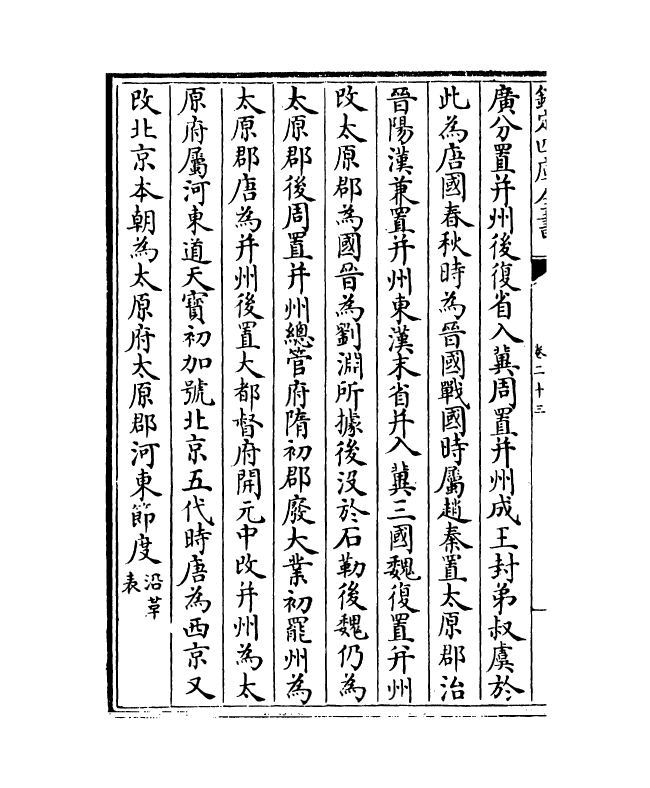 欽定四庫全書
卷二十三
廣分置并州後復省入冀周置并州成王封弟叔虞於
此為唐國春秋時為晉國戰國時屬趙秦置太原郡治
晉陽漢兼置并州東漢末省并入冀三國魏復置并州
改太原郡為國晉為劉淵所據後沒於石勒後魏仍為
太原郡後周置并州總管府隋初郡廢大業初罷州為
太原郡唐為并州後置大都督府開元中改并州為太
原府屬河東道天寶初加號北京五代時唐為西京又
改北京本朝為太原府太原郡河東節度沿革表